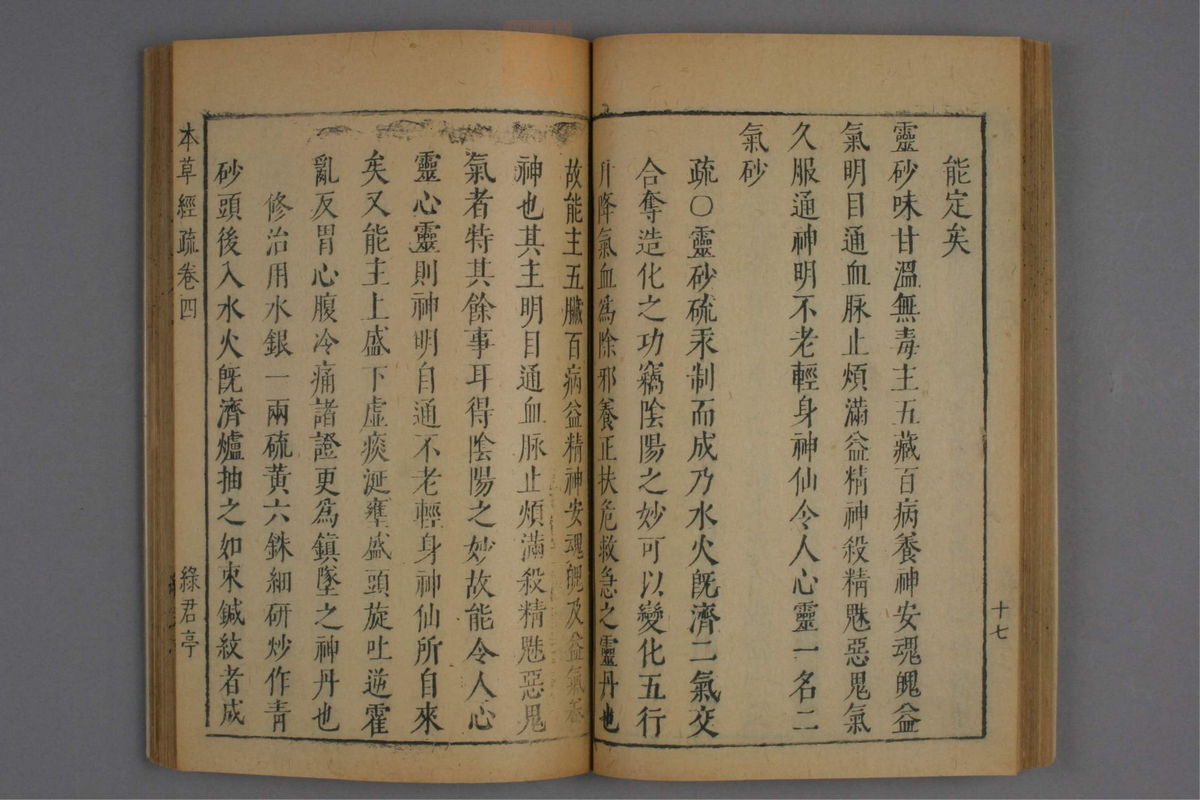 能定矣
靈砂味甘溫無毒主五藏百病養神安魂魄益
氣明目通血脉止煩滿益精神殺精魅惡鬼氣
久服通神明不老輕身神仙令人心靈一名二
氣砂
疏○靈砂硫汞制而成乃水火旣濟二氣交
合奪造化之功竊陰陽之妙可以變化五行
升降氣血爲除邪養正扶危救急之靈丹也
十七
故能主五臟百病益精神安魂魄及益氣養
神也其主明目通血脉止煩滿殺精魅惡鬼
氣者特其餘事耳得陰陽之妙故能令人心
靈心靈則神明自通不老輕身神仙所自來
矣又能主上盛下虛痰涎壅盛頭旋吐逆霍
亂反胃心腹冷痛諸證更爲鎮墜之神丹也
修治用水銀一兩硫黃六銖細研炒作青
砂頭後入水火旣濟爐抽之如束鍼紋者成
本草經疏卷四
綠君亭